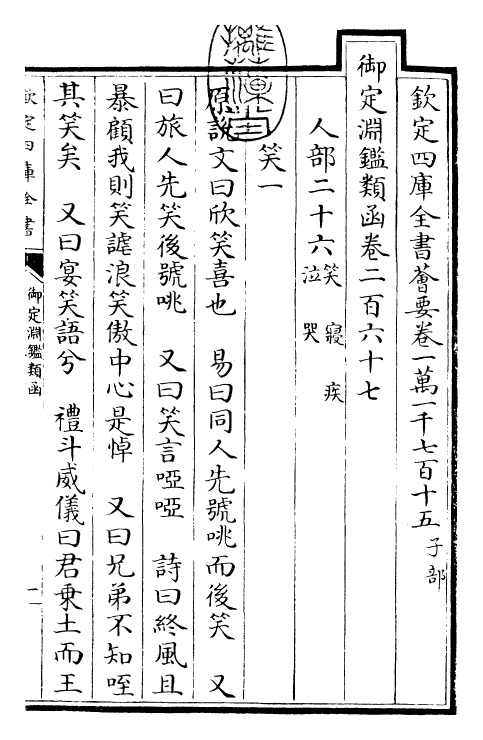 欽定四庫全書薈要卷一萬一千七百十五 子部
御定淵鑑類函卷二百六十七
人部二十六 笑 寢 疾 泣 哭
笑一
原說文曰欣笑喜也 易曰同人先號咷而後笑 又
曰旅人先笑後號咷 又曰笑言啞啞 詩曰終風且
暴顧我則笑謔浪笑傲中心是悼 又曰兄弟不知咥
其笑矣 又曰宴笑語兮 禮斗威儀曰君乗土而王
欽定四庫全書
御定淵鑑類函